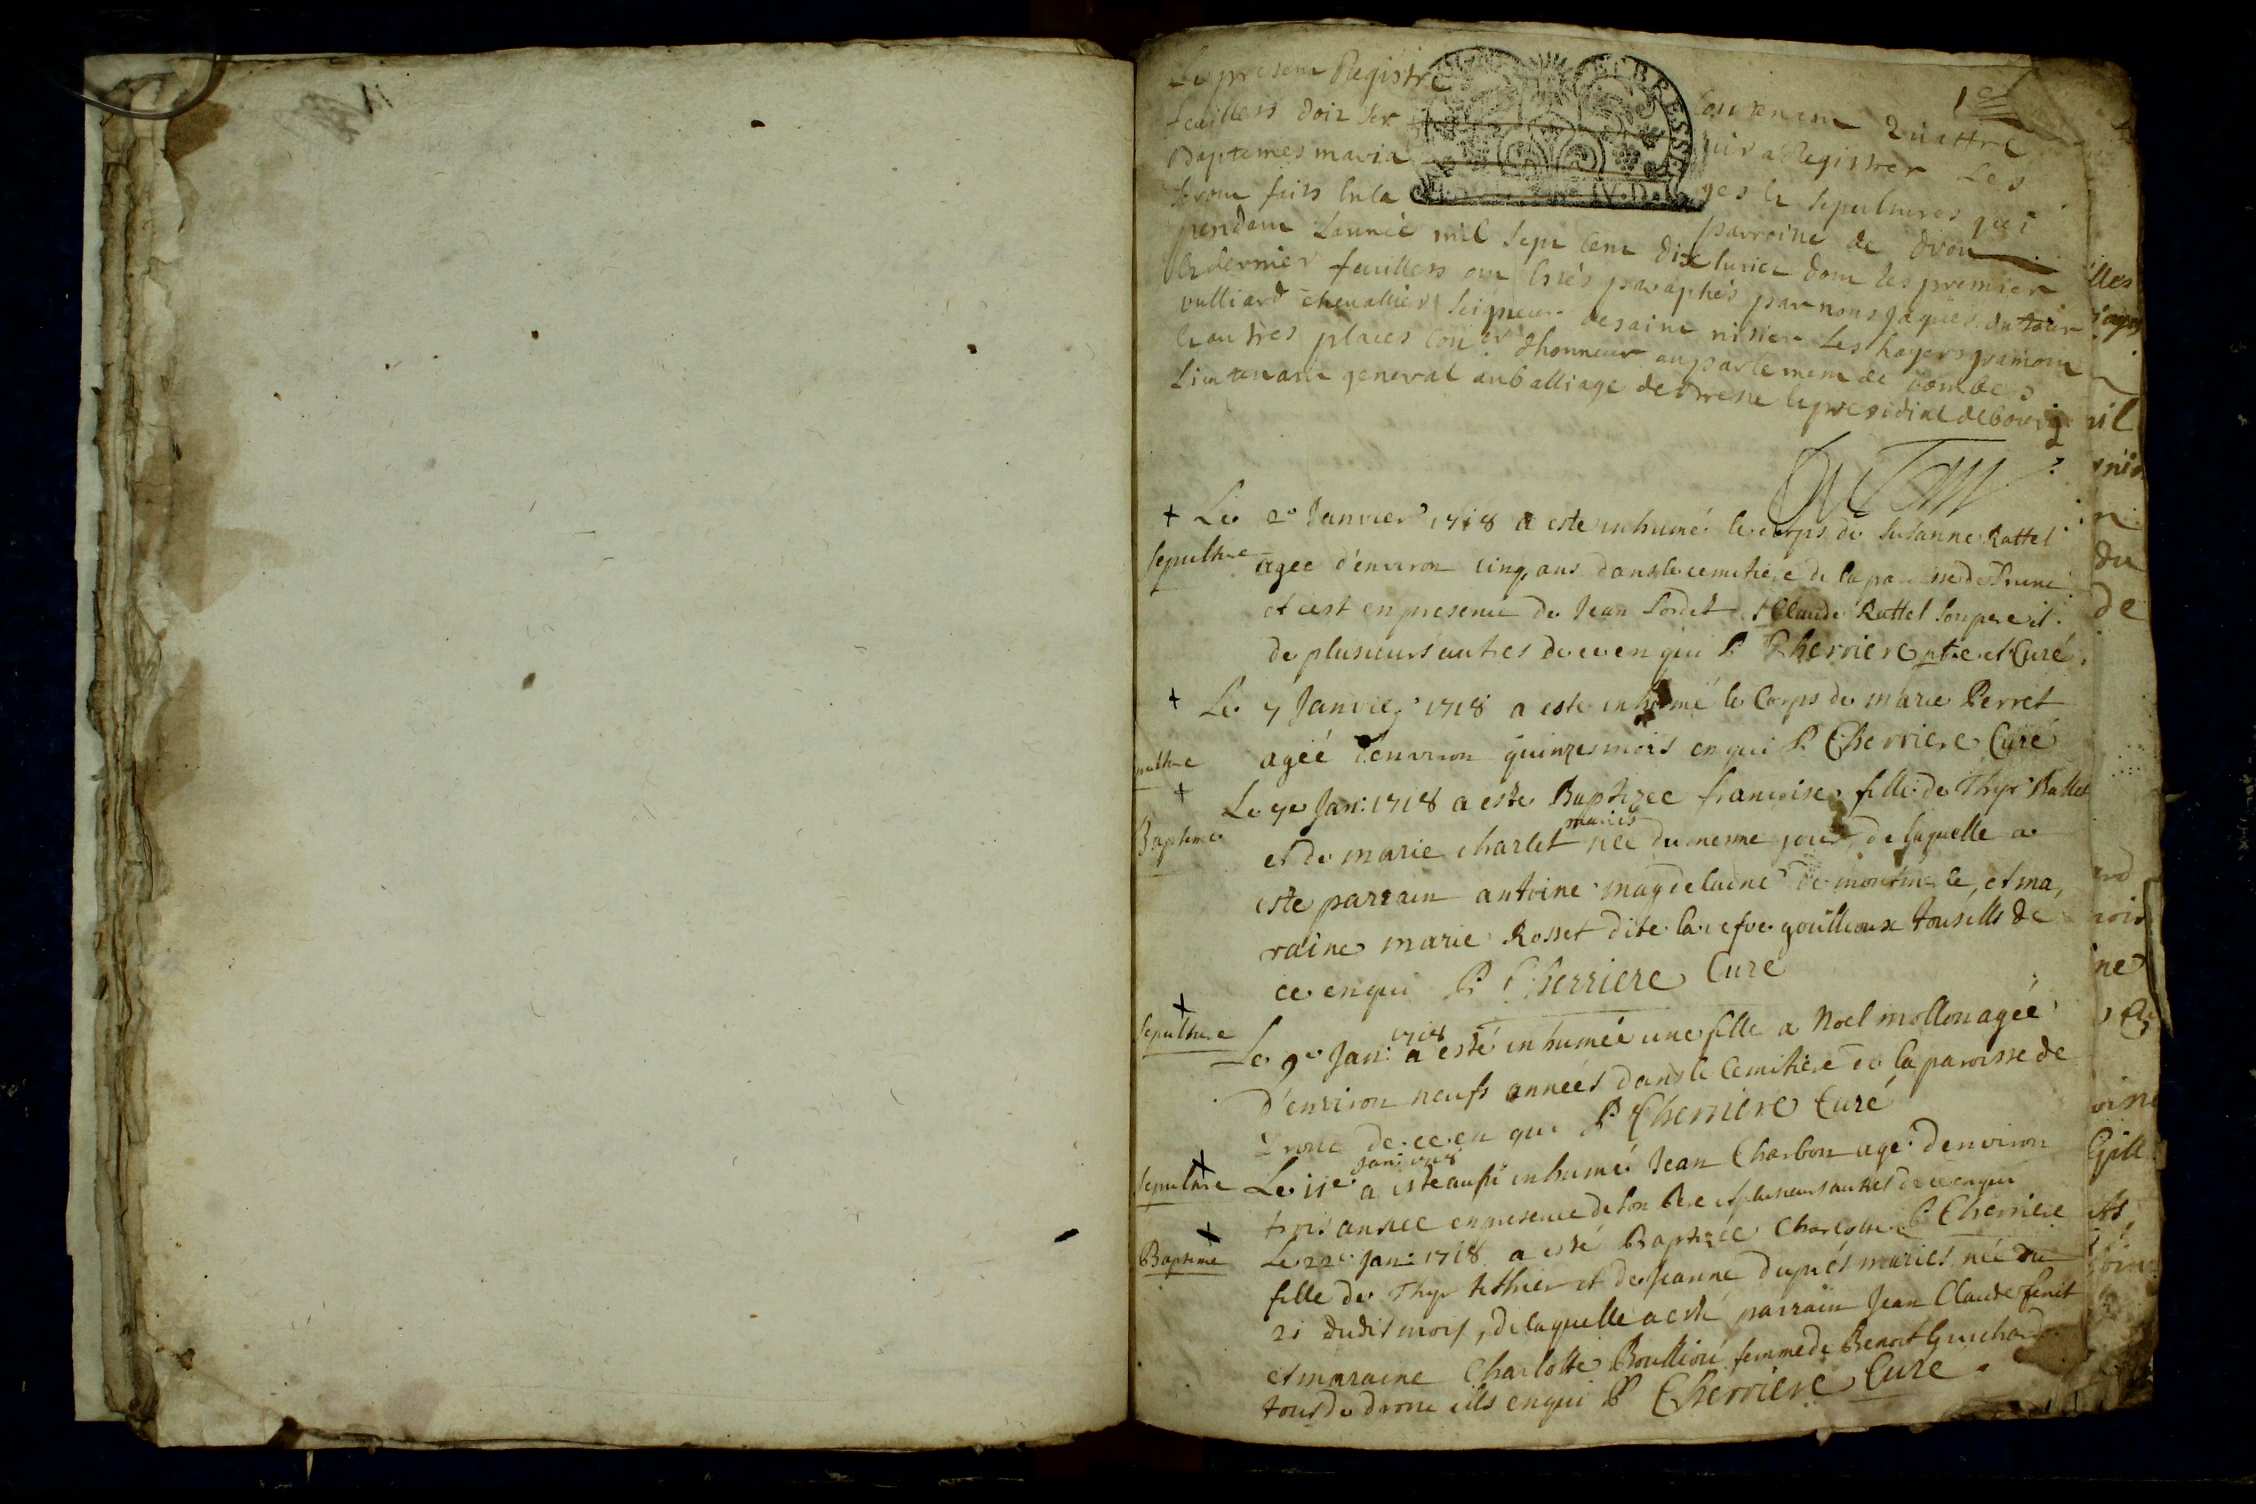 1er
Le present Registre contenant Quattre
feuillets doit servir a Registrer Les
Baptemes mariages & sepultures qui
seront faits en la parroisse de dron
pendant L'année mil sept cent dix huict dont les premier
& dernier feuillets ont estés paraphés par nous jaques du tour
vulliard chevallier Seigneur de saint nisier Les
& autres places Con.er d'honneur au parlement de Dombes
Lieutenant general au balliage de Bresse & presidial de bourg
DuTour
+ Le 2e Janvier 1718 a este inhumé le corps de Susanne Rattel
sepulture
agee d'environ cinq ans dans le cemitiere de la paroisse de
et cest en presence de Jean Sordet & Claude Rattel son pere et
de plusieurs autres de ce en qui P. Cherriere ptre et Curé
+ Le 7 Janvier 1718 a este inhumé le Corps de marie Perret
pulture
agée d'environ quinze mois en qui P. Cherriere Curé
+
Le 7e Jan: 1718 a este Baptizee francoise fille de Thyr Ballet
Bapteme
mariés
et de marie charlet née du mesme jour, de laquelle a
este parrain antoine magdelaine de montmerle, et ma,
raine marie Rosset dite la vefve gouilloux tous ills de
ce en qui P. Cherriere Curé
+
sepulture
1718
Le 9e Jan: a esté inhumée une fille a Noel mollon agée
d'environ neufs années dans le Cemitiere de la paroisse de
Drone de ce en qui P. Cherriere Curé
+
sepulture
Jan: 1718
Le 11e a este aussi inhumé Jean Charbon agé d'environ
trois année en presence de son Pere et plusieurs autres de ce en qui
P. Cherriere
+
Bapteme
Le 22e Jan: 1718 a esté Baptizée Charlotte
fille de Thyr tethier et de Jeanne dupués mariés née du
21 dudit mois, de laquelle a esté parrain Jean Claude
et maraine Charlotte Boullioü femme de Benoit Guichard
tous de drone ills en qui P. Cherriere Curé